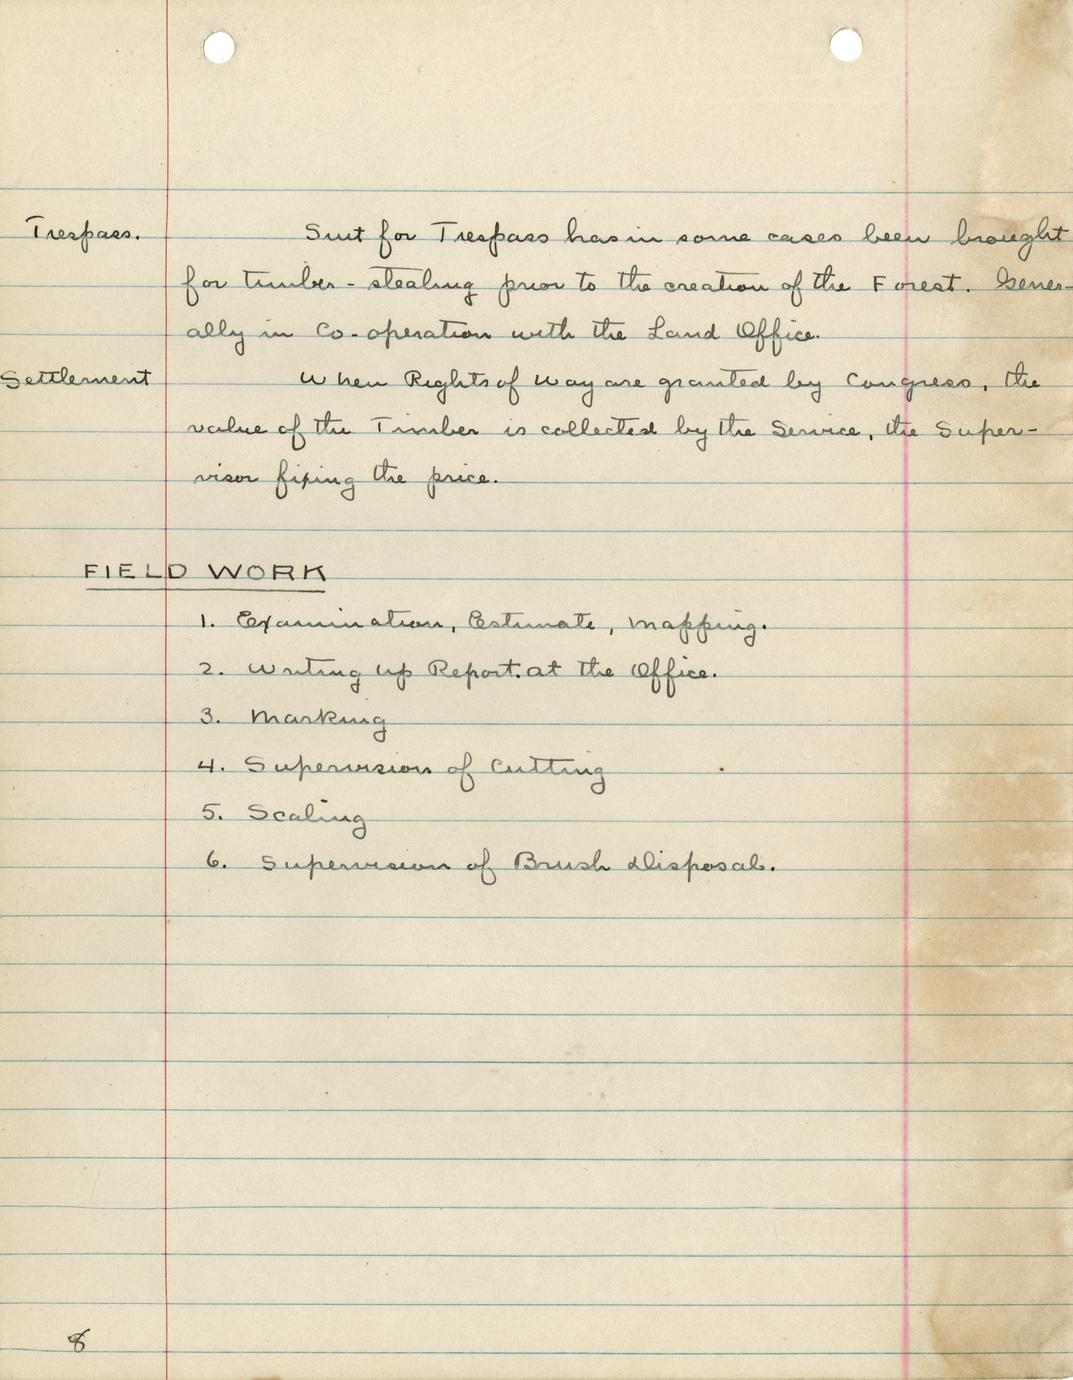 Trespass. Suit for Trespass has in some cases been brought
for timber-stealing prior to the creation of the Forest. Gener-
ally in Co-operation with the Land Office.
Settlement When Rights of Way are granted by Congress, the
value of the Timber is collected by the Service, the Super-
visor fixing the price.
FIELD WORK
1. Examination, Estimate, Mapping.
2. Writing up Report at the Office.
3. Marking
4. Supervision of Cutting
5. Scaling
6. Supervision of Brush Disposal.
8